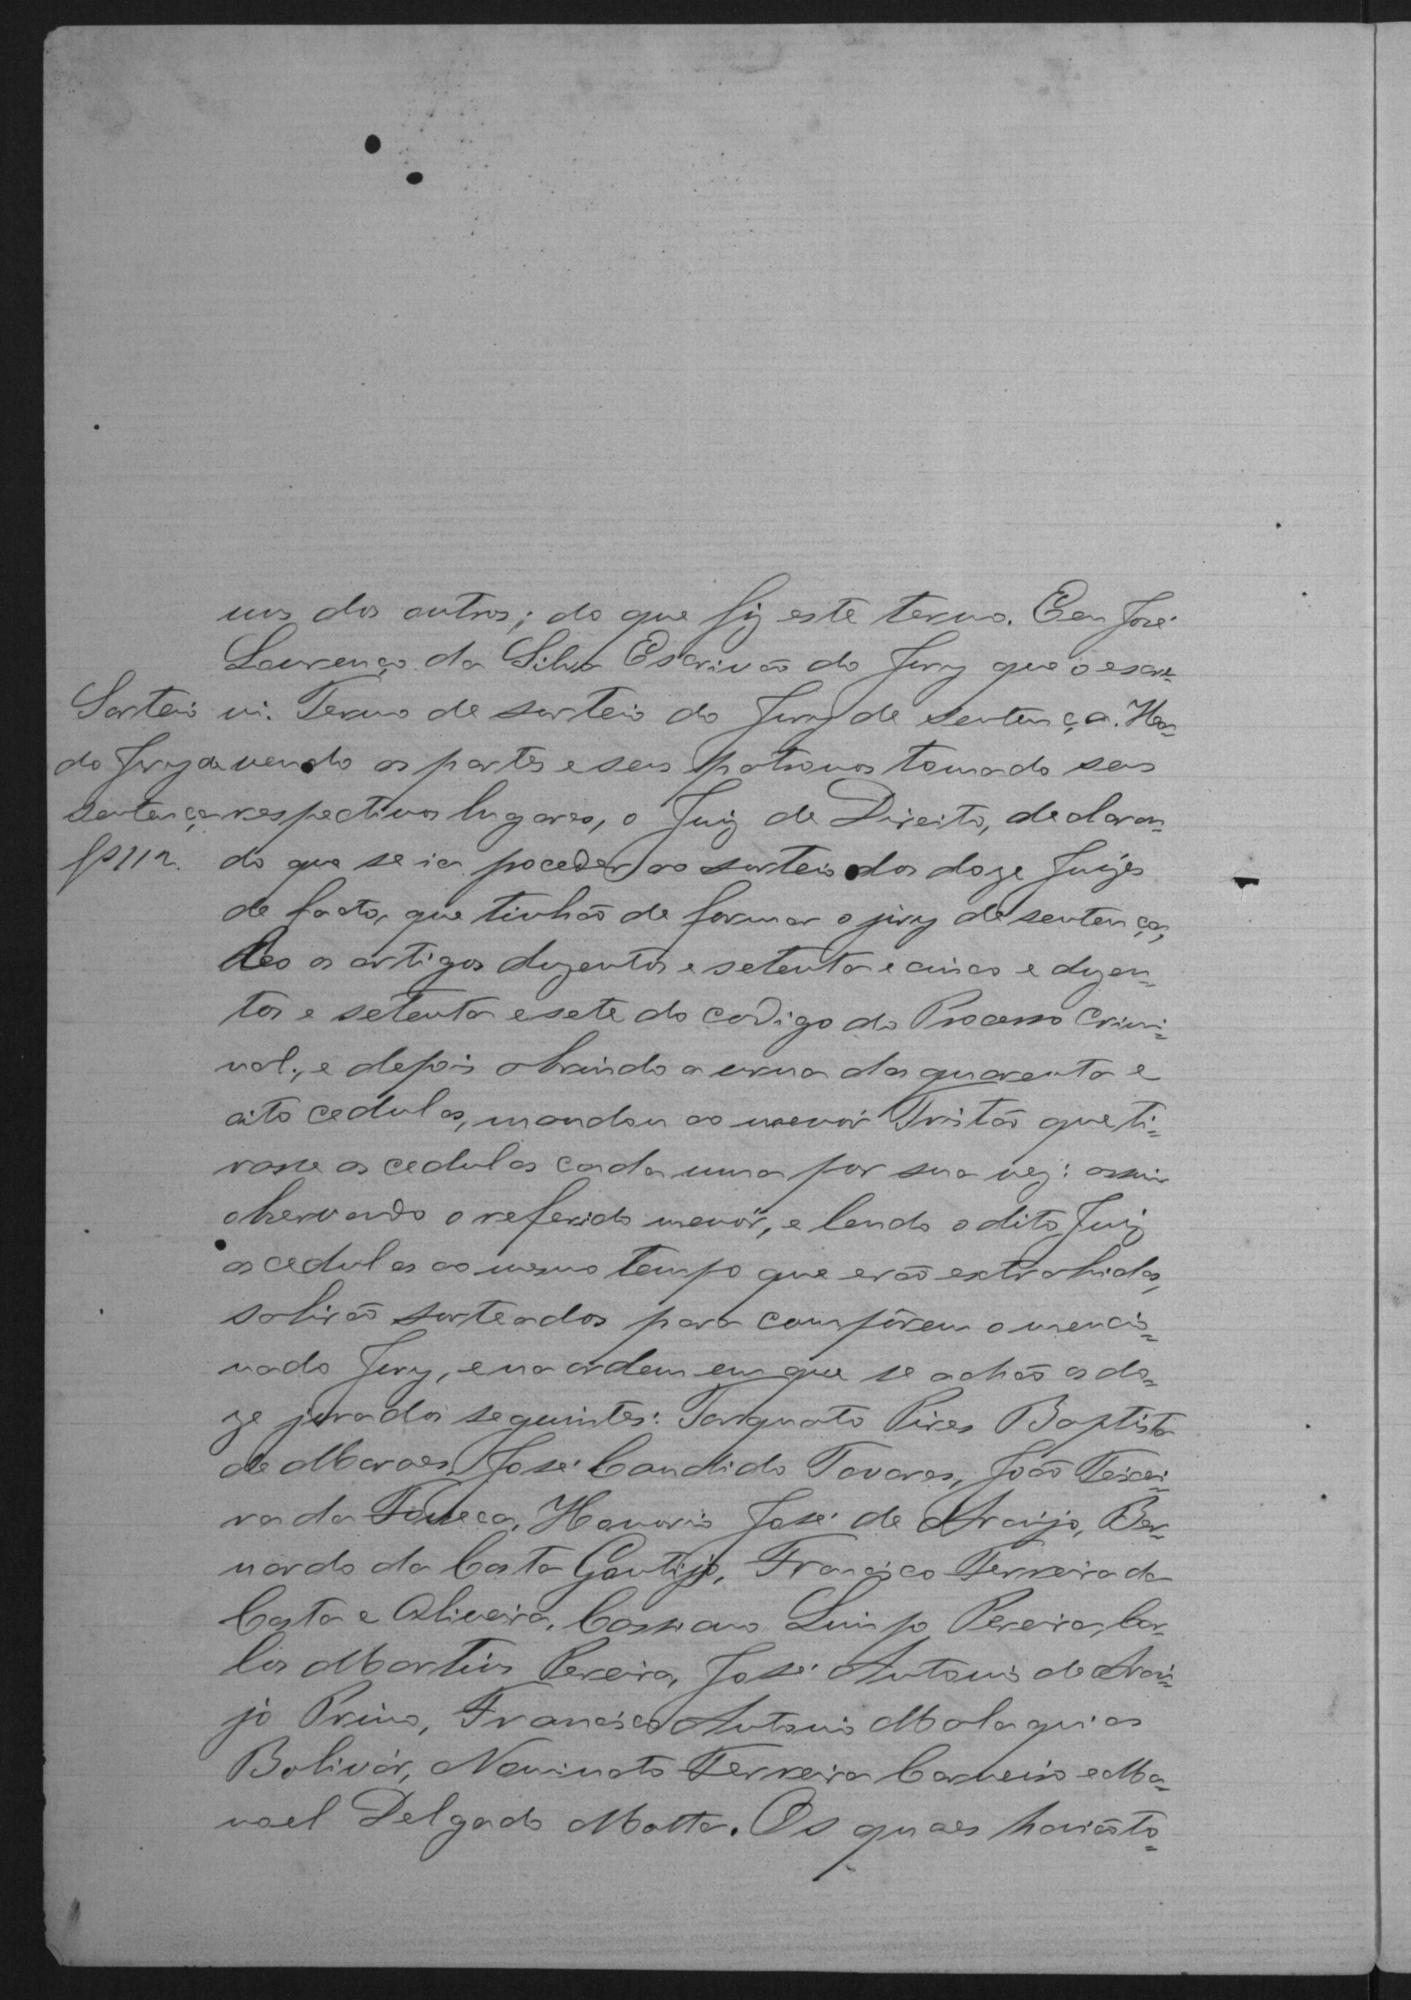 uns dos outros; do que fiz este termo. E eu José
Lourenço da Silva Escrivão do Jury que o escre=
vi. Termo de sorteio do Jury de sentença. Ha=
Sorteio
do Jury de
sentença
fs 112.
vendo as partes e seus patronos tomado seus
respectivos lugares, o Juiz de Direito, declaran=
do que se ia poceder ao sorteio dos doze Juizes
de facto, que tinhão de formar o jury de sentença,
leo os artigos duzentos e setenta e cinco e duzen=
tos e setenta e sete do codigo do Processo Crimi=
nal, e depois abrindo a urna das quarenta e
oito cedulas, mandou ao menor Tristão que ti=
rasse as cedulas cada uma por sua vez: assim
observando o referido menór, e lendo o dito Juiz
as cedulas ao mesmo tempo que erão extrahidas,
sahirão sorteados para compôrem o mencio=
nado Jury, e na ordem em que se achão os do=
ze jurados seguintes: Torquato Pires Baptista
de Moraes, José Candido Tavares, João Teixei=
ra da Fonseca, Honorio José de Araujo, Ber=
nardo da Costa Gontijo, Francisco Ferreira da
Costa e Oliveira, Cassiano Pereira, Car=
los Martins Pereira, José Antonio de Arau=
jo Primo, Francisco Antonio Malaquias
Bolivár, Nominato Ferreira Carneiro e Ma=
noel Delgado Motta. Os quaes haviãoto=